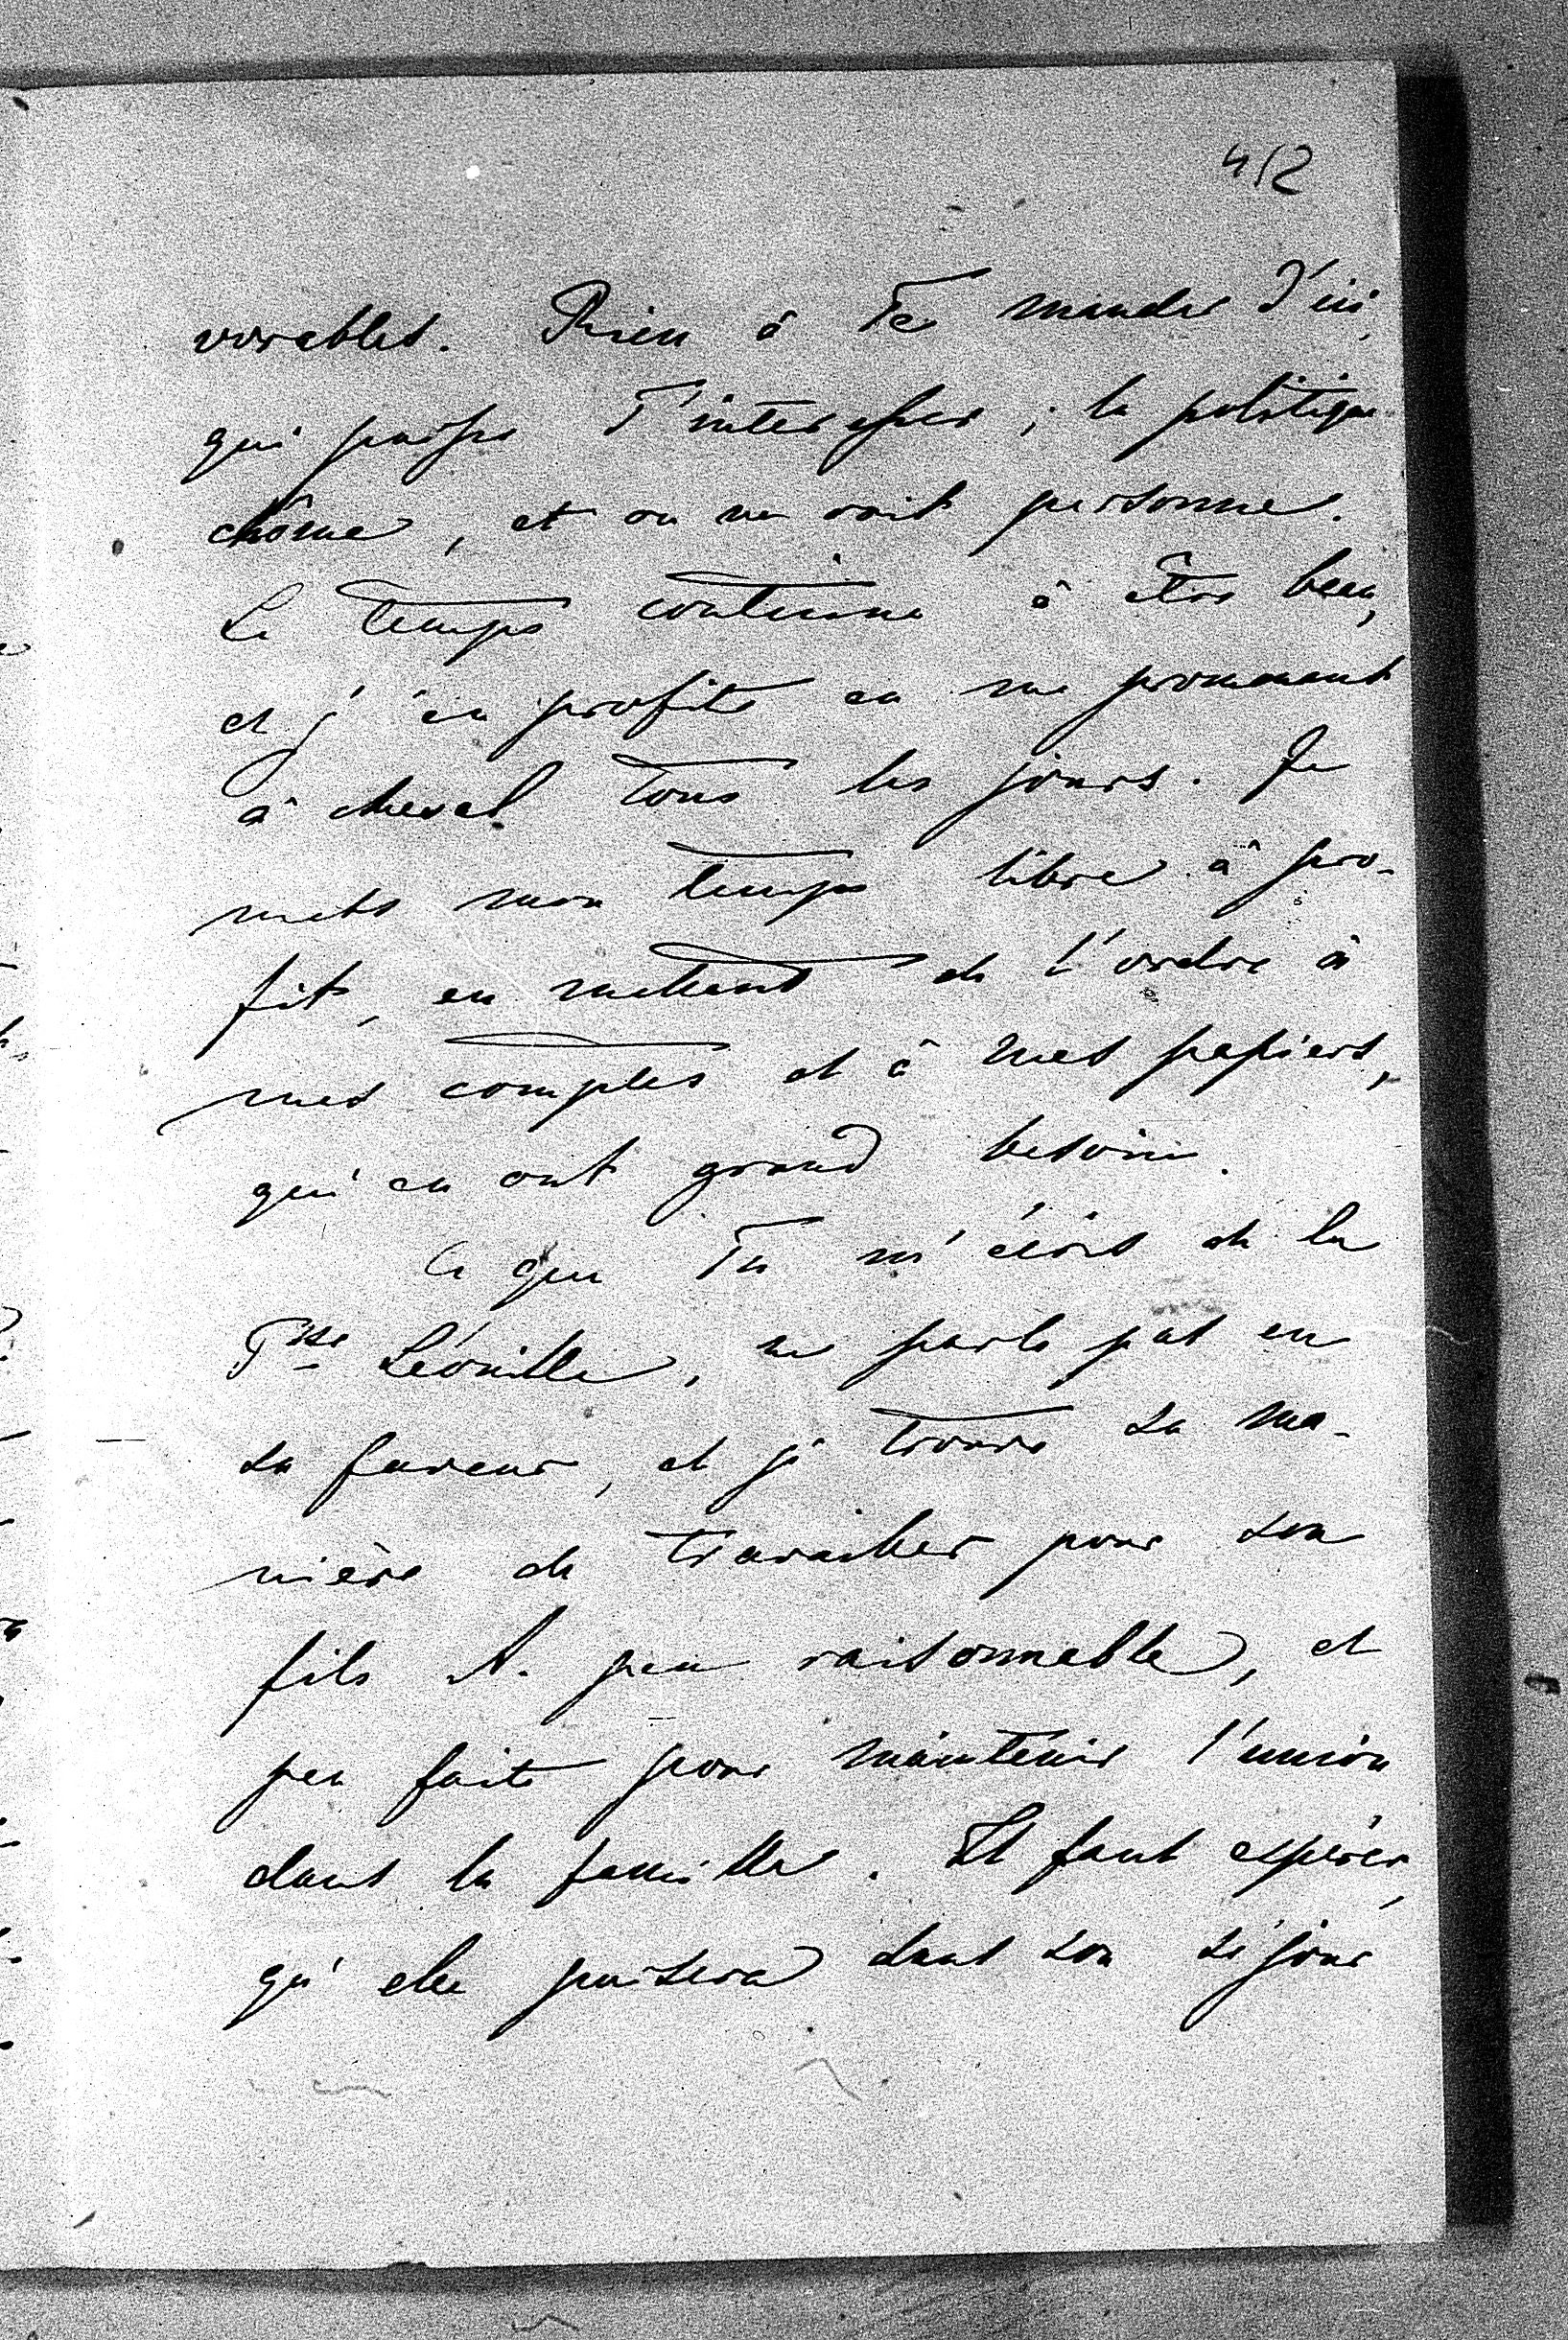 452
vorables. Rien à Te mander d'ici,
qui puisse T'interesser; la politique
chôme, et on ne voit personne.
Le temps continue à être beau,
et j'en profite en me promenant
à cheval tous les jours. Je
mets mon temps libre à pro-
fit, en mettant de l'ordre à
mes comptes et à mes papiers,
qui en ont grand besoin.
Ce que Tu m'écris de la
Psse Léonille, ne parle pas en
sa faveur, et je trouve sa ma-
nière de travailler pour son
fils A. peu raisonnable, et
peu faite pour maintenir l'union
dans la famille. Il faut espérer,
qu'elle puisera dans son séjour